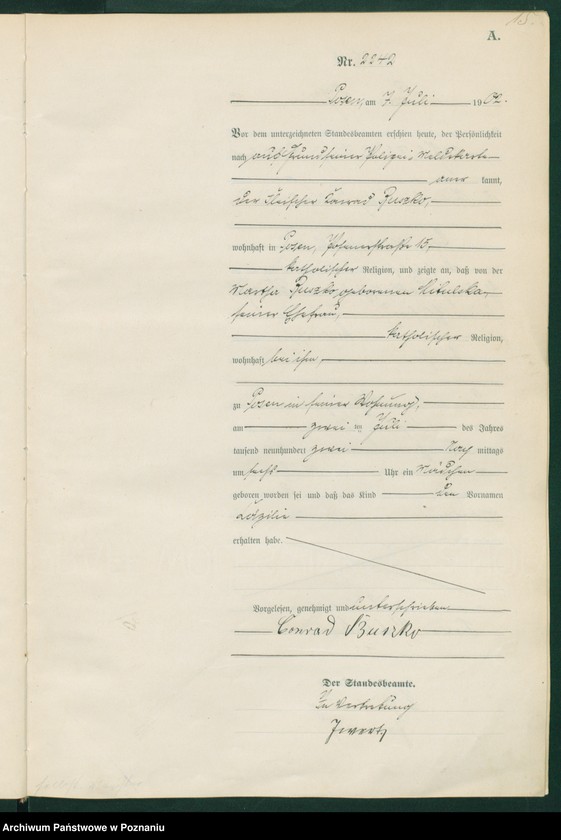 15.
A.
Nr. 2242
Posen, am 7. Juli 1902.
Vor dem unterzeichneten Standesbeamten erschien heute, der Persönlichkeit
nach auf Grund seiner Polizei-Meldekarte
aner kannt,
der Fleischer Konrad Buszko,
wohnhaft in Posen, Posenerstraße 15,
katholischer Religion, und zeigte an, daß von der
Martha Buszko, geborenen Mikulska
seiner Ehefrau,
katholischer Religion,
wohnhaft bei ihm,
zu Posen in seiner Wohnung,
am zwei ten Juli des Jahres
tausend neunhundert zwei Nach mittags
um sechs Uhr ein Mädchen
geboren worden sei und daß das Kind den Vornamen
erhalten habe.
Vorgelesen, genehmigt und unterschrieben
Conrad Buszko
Der Standesbeamte.
In Vertretung
Archiwum Państwowe w Poznaniu